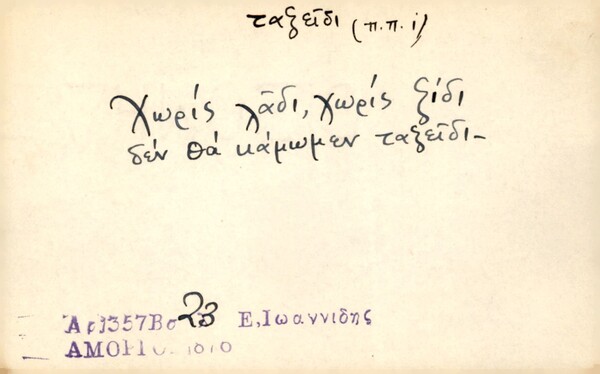 ταξεῖδι (π.π. ί)
Χωρίς λᾶδι, χωρίς ξίδι
δέν θά κάμωμεν ταξεῖδι_
Ἀρ1357Βσ 23 Ε,Ιωαννιδης